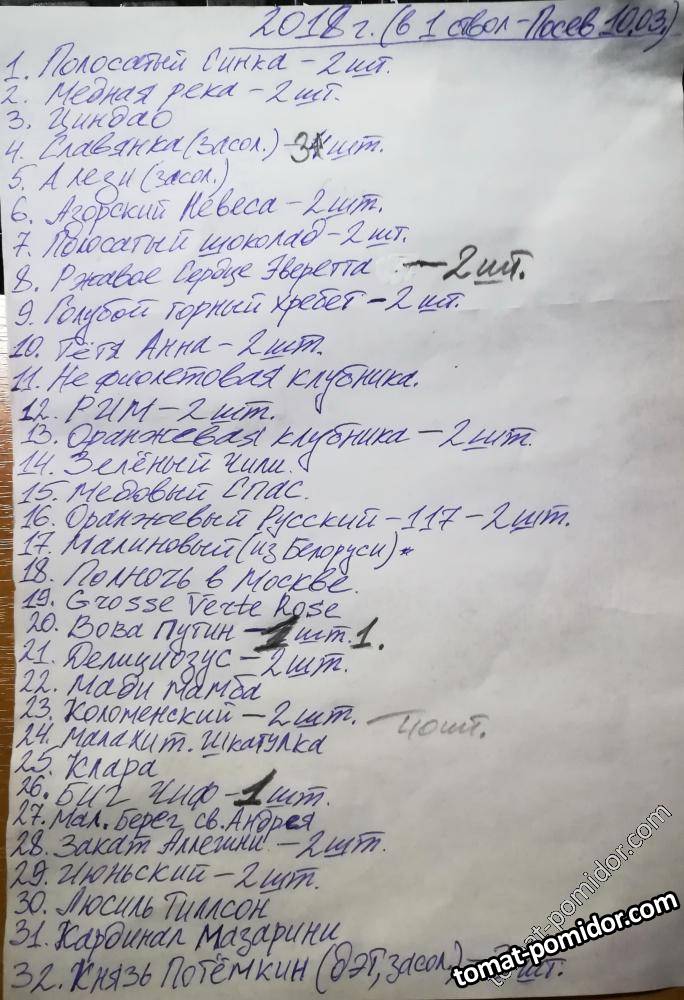 2018 г. (в 1 ствол - Посев 10.03.)
1. Полосатый Синка - 2 шт.
2. Медная река - 2 шт.
3. Циндао
4. Славянка (засол.) - шт.
5. Алези (засол.)
6. Азорский Невеса - 2 шт.
7. Полосатый шоколад - 2 шт.
8. Ржавое Сердце Эверетта - 2 шт.
9. Голубой горный хребет - 2 шт.
10. Тётя Анна - 2 шт.
11. Не фиолетовая клубника.
12. РИМ - 2 шт.
13. Оранжевая клубника - 2 шт.
14. Зелёный Чили.
15. Медовый Спас.
16. Оранжевый Русский - 117 - 2 шт.
17. Малиновый (из Белоруси)*
18. Полночь в Москве.
19. Grosse Verte Rose
20. Вова Путин - 1 шт. 1.
21. Делициозус - 2 шт.
22. Мади Мамба
23. Коломенский - 2 шт. - 40 шт.
24. Малахит. Шкатулка
25. Клара
26. Биг Чиф - 1 шт.
27. Мал. Берег св. Андрея
28. Закат Аллегини - 2 шт.
29. Июньский - 2 шт.
30. Люсиль Тиллсон
31. Кардинал Мазарини
32. Князь Потёмкин (дэт, засол.) - шт.
tomat-pomidor.com
tomat-pomidor.com